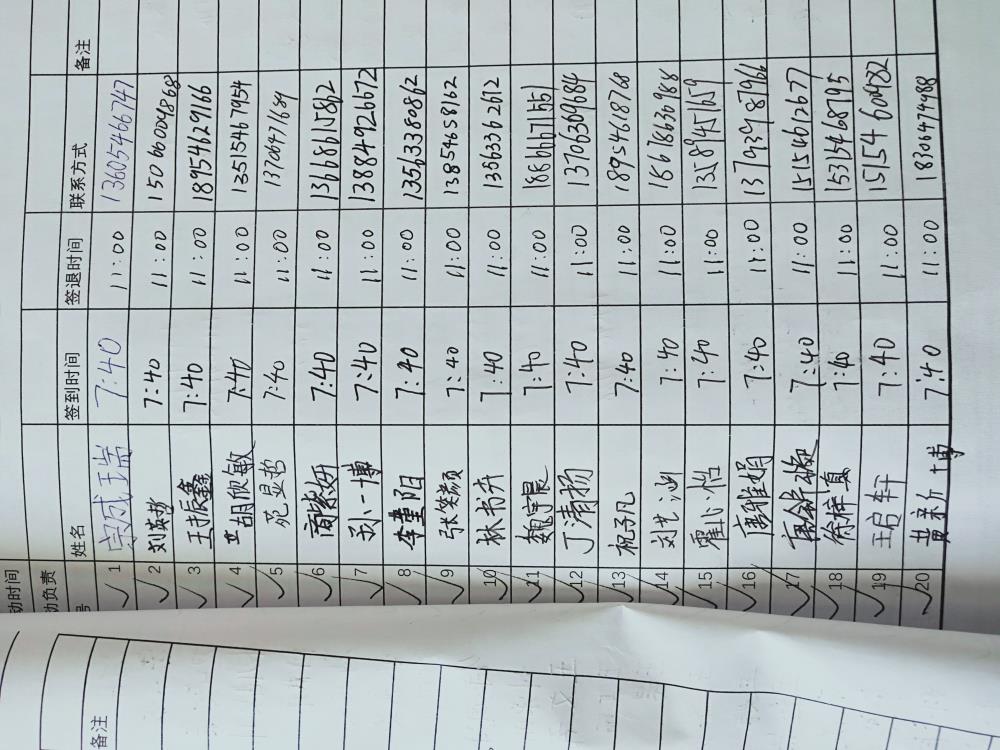 动时间
动负责
号 姓名 签到时间 签退时间 联系方式 备注
1 宗成瑞 7:40 11:00 13605466747
2 刘英哲 7:40 11:00 15066009868
3 王振鑫 7:40 11:00 18954629166
4 胡欣敏 7:40 11:00 13515467954
5 苑显哲 7:40 11:00 13706471689
6 商紫妍 7:40 11:00 13686115862
7 刘一博 7:40 11:00 13884926672
8 李奎阳 7:40 11:00 13563380862
9 张笑颜 7:40 11:00 13854658162
10 林书卉 7:40 11:00 13633362612
11 魏宇晨 7:40 11:00 18866671551
12 丁清扬 7:40 11:00 13706369684
13 祝子凡 7:40 11:00 18954618768
14 刘艺涵 7:40 11:00 18678636988
15 霍心怡 7:40 11:00 13589451659
16 唐雅娟 7:40 11:00 13793987966
17 7:40 11:00 15154662677
18 徐梓真 7:40 11:00 15315468795
19 王启轩 7:40 11:00 15154660982
20 黄新博 7:40 11:00 18306474988
备注